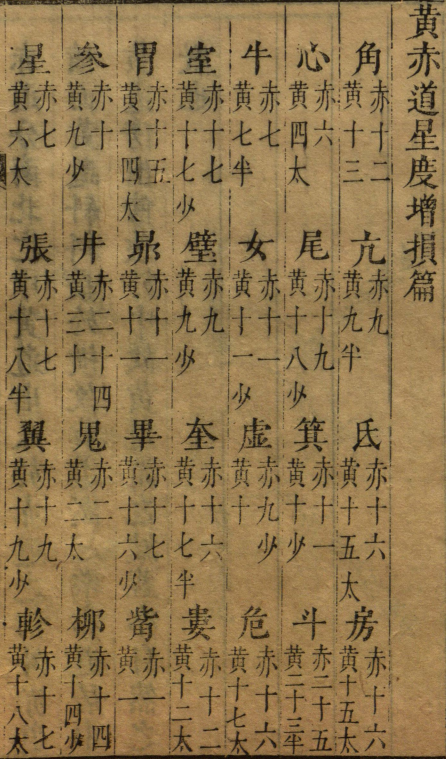 黄赤道星度增損篇
角赤十二黄十三亢赤九黄九半氐赤十六黄十五太房赤十六黄十五太
心赤六黄四太尾赤十九黄十八少箕赤十一黄十少斗赤二十五黄二十三半
牛赤七黄七半女赤十一黄十一少虚赤九少黄十危赤十六黄十七太
室赤十七黄十七少壁赤九黄九少奎赤十六黄十七半婁赤十二黄十二太
胃赤十五黄十四太昴赤十一黄十一畢赤十七黄十六少觜赤一黄一
参赤十黄九少井赤二十四黄三十鬼赤二黄二太柳赤十四黄十四少
星赤七黄六太張赤十七黄十八半翼赤十九黄十九少軫赤十七黄十八太